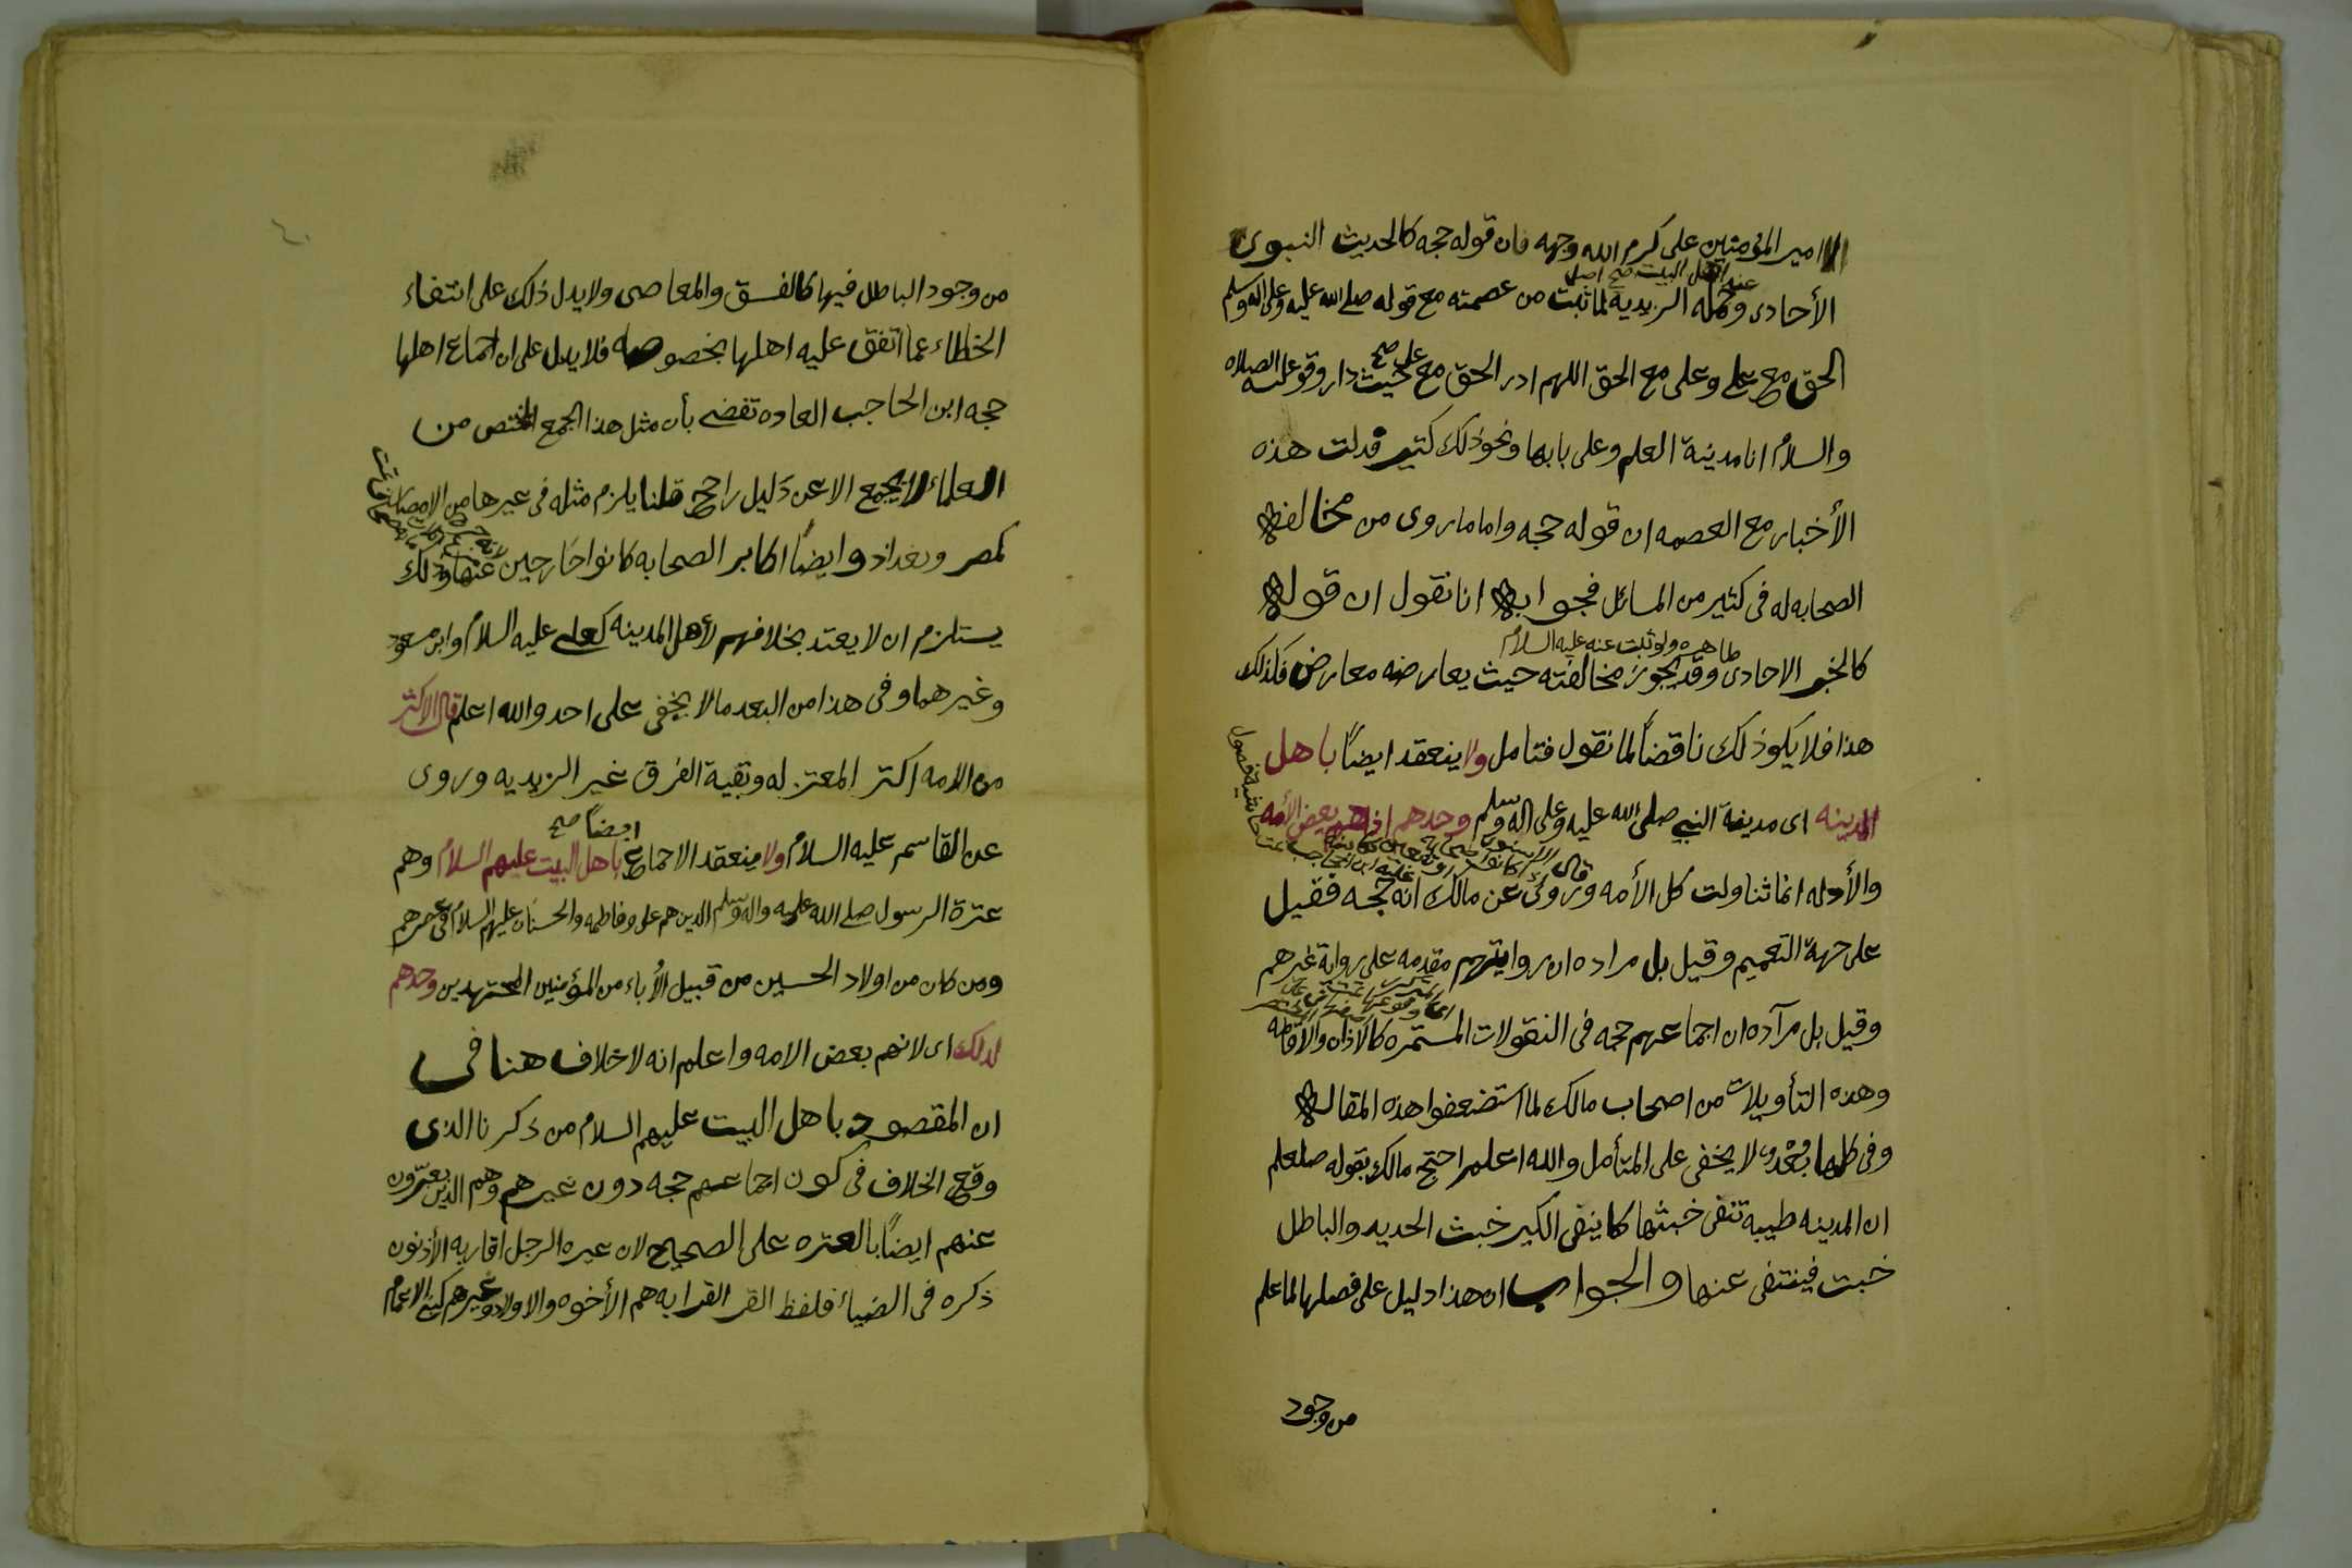 امير المؤمنين على كرم الله وجهه فان قوله حجه كالحديث النبوى
الأحادى وحمله الزيديه لما ثبت من عصمته مع قوله صلى الله عليه وعلى اله وسلم
عند اهل البيت صح اصل
الحق مع على وعلى مع الحق اللهم ادر الحق مع على حيث دار وقوله عليه الصلاه
والسلام انا مدينة العلم وعلى بابها ونحو ذلك كثير فدلت هذه
الأخبار مع العصمه ان قوله حجه واما ما روى من مخالفة
الصحابه له فى كثير من المسائل فجوابه انا نقول ان قوله
ظاهره ولو ثبت عنه عليه السلام
كالخبر الاحادى وقد يجوز مخالفته حيث يعارضه معارض فكذلك
هذا فلا يكون ذلك ناقضاً لما نقول فتامل ولا ينعقد ايضاً باهل
المدينه اى مدينة النبي صلى الله عليه وعلى اله وسلم وحدهم اذ هم بعض الأمه
حاشية فصول
والأدله انما تناولت كل الأمه وروى عن مالك انه حجه فقيل
على جهة التعميم وقيل بل مراده ان روايتهم مقدمه على رواية غيرهم
وقيل بل مراده ان اجماعهم حجه فى النقولات المستمره كالاذان والاقامه
وهذه التأويلات من اصحاب مالك لما استضعفوا هذه المقاله
وفى كلها بُعْدٌ لا يخفى على المتأمل والله اعلم احتج مالك بقوله صلعلم
ان المدينه طيبه تنفى خبثها كما ينفى الكير خبث الحديد والباطل
خبث فينتفى عنها والجواب ان هذا دليل على فضلها لما علم
من وجود
من وجود الباطل فيها كالفسق والمعاصى ولا يدل ذلك على انتفاء
الخطاء عما اتفق عليه اهلها بخصوصه فلا يدل على ان اجماع اهلها
حجه ابن الحاجب العاده تقضى بأن مثل هذا الجمع المختص من
العلماء لا يجمع الا عن دليل راجح قلنا يلزم مثله فى غيرها من الامصار
كمصر وبغداد وايضاً اكابر الصحابه كانوا خارجين عنها وذلك
يستلزم ان لا يعتد بخلافهم لأهل المدينه كعلى عليه السلام وابن مسعود
وغيرهما وفى هذا من البعد ما لا يخفى على احد والله اعلم قال الاكثر
من الامه اكثر المعتزله وبقية الفرق غير الزيديه وروى
ايضاً صح
عن القاسم عليه السلام ولا ينعقد الاجماع باهل البيت عليهم السلام وهم
عترة الرسول صلى الله عليه واله وسلم الذين هم على وفاطمه والحسنان عليهم السلام فى عصرهم
ومن كان من اولاد الحسين من قبيل الأباء من المؤمنين المجتهدين وحدهم
لذلك اى لانهم بعض الامه واعلم انه لا خلاف هنا فى
ان المقصود باهل البيت عليهم السلام من ذكرنا الذى
وقع الخلاف فى كون اجماعهم حجه دون غيرهم وهم الذين يعبّرون
عنهم ايضاً بالعتره على الصحيح لان عتره الرجل اقاربه الأدنون
ذكره فى الضياء فلفظ القر القرابه هم الأخوه والاولاد وغيرهم كبنى الاعمام